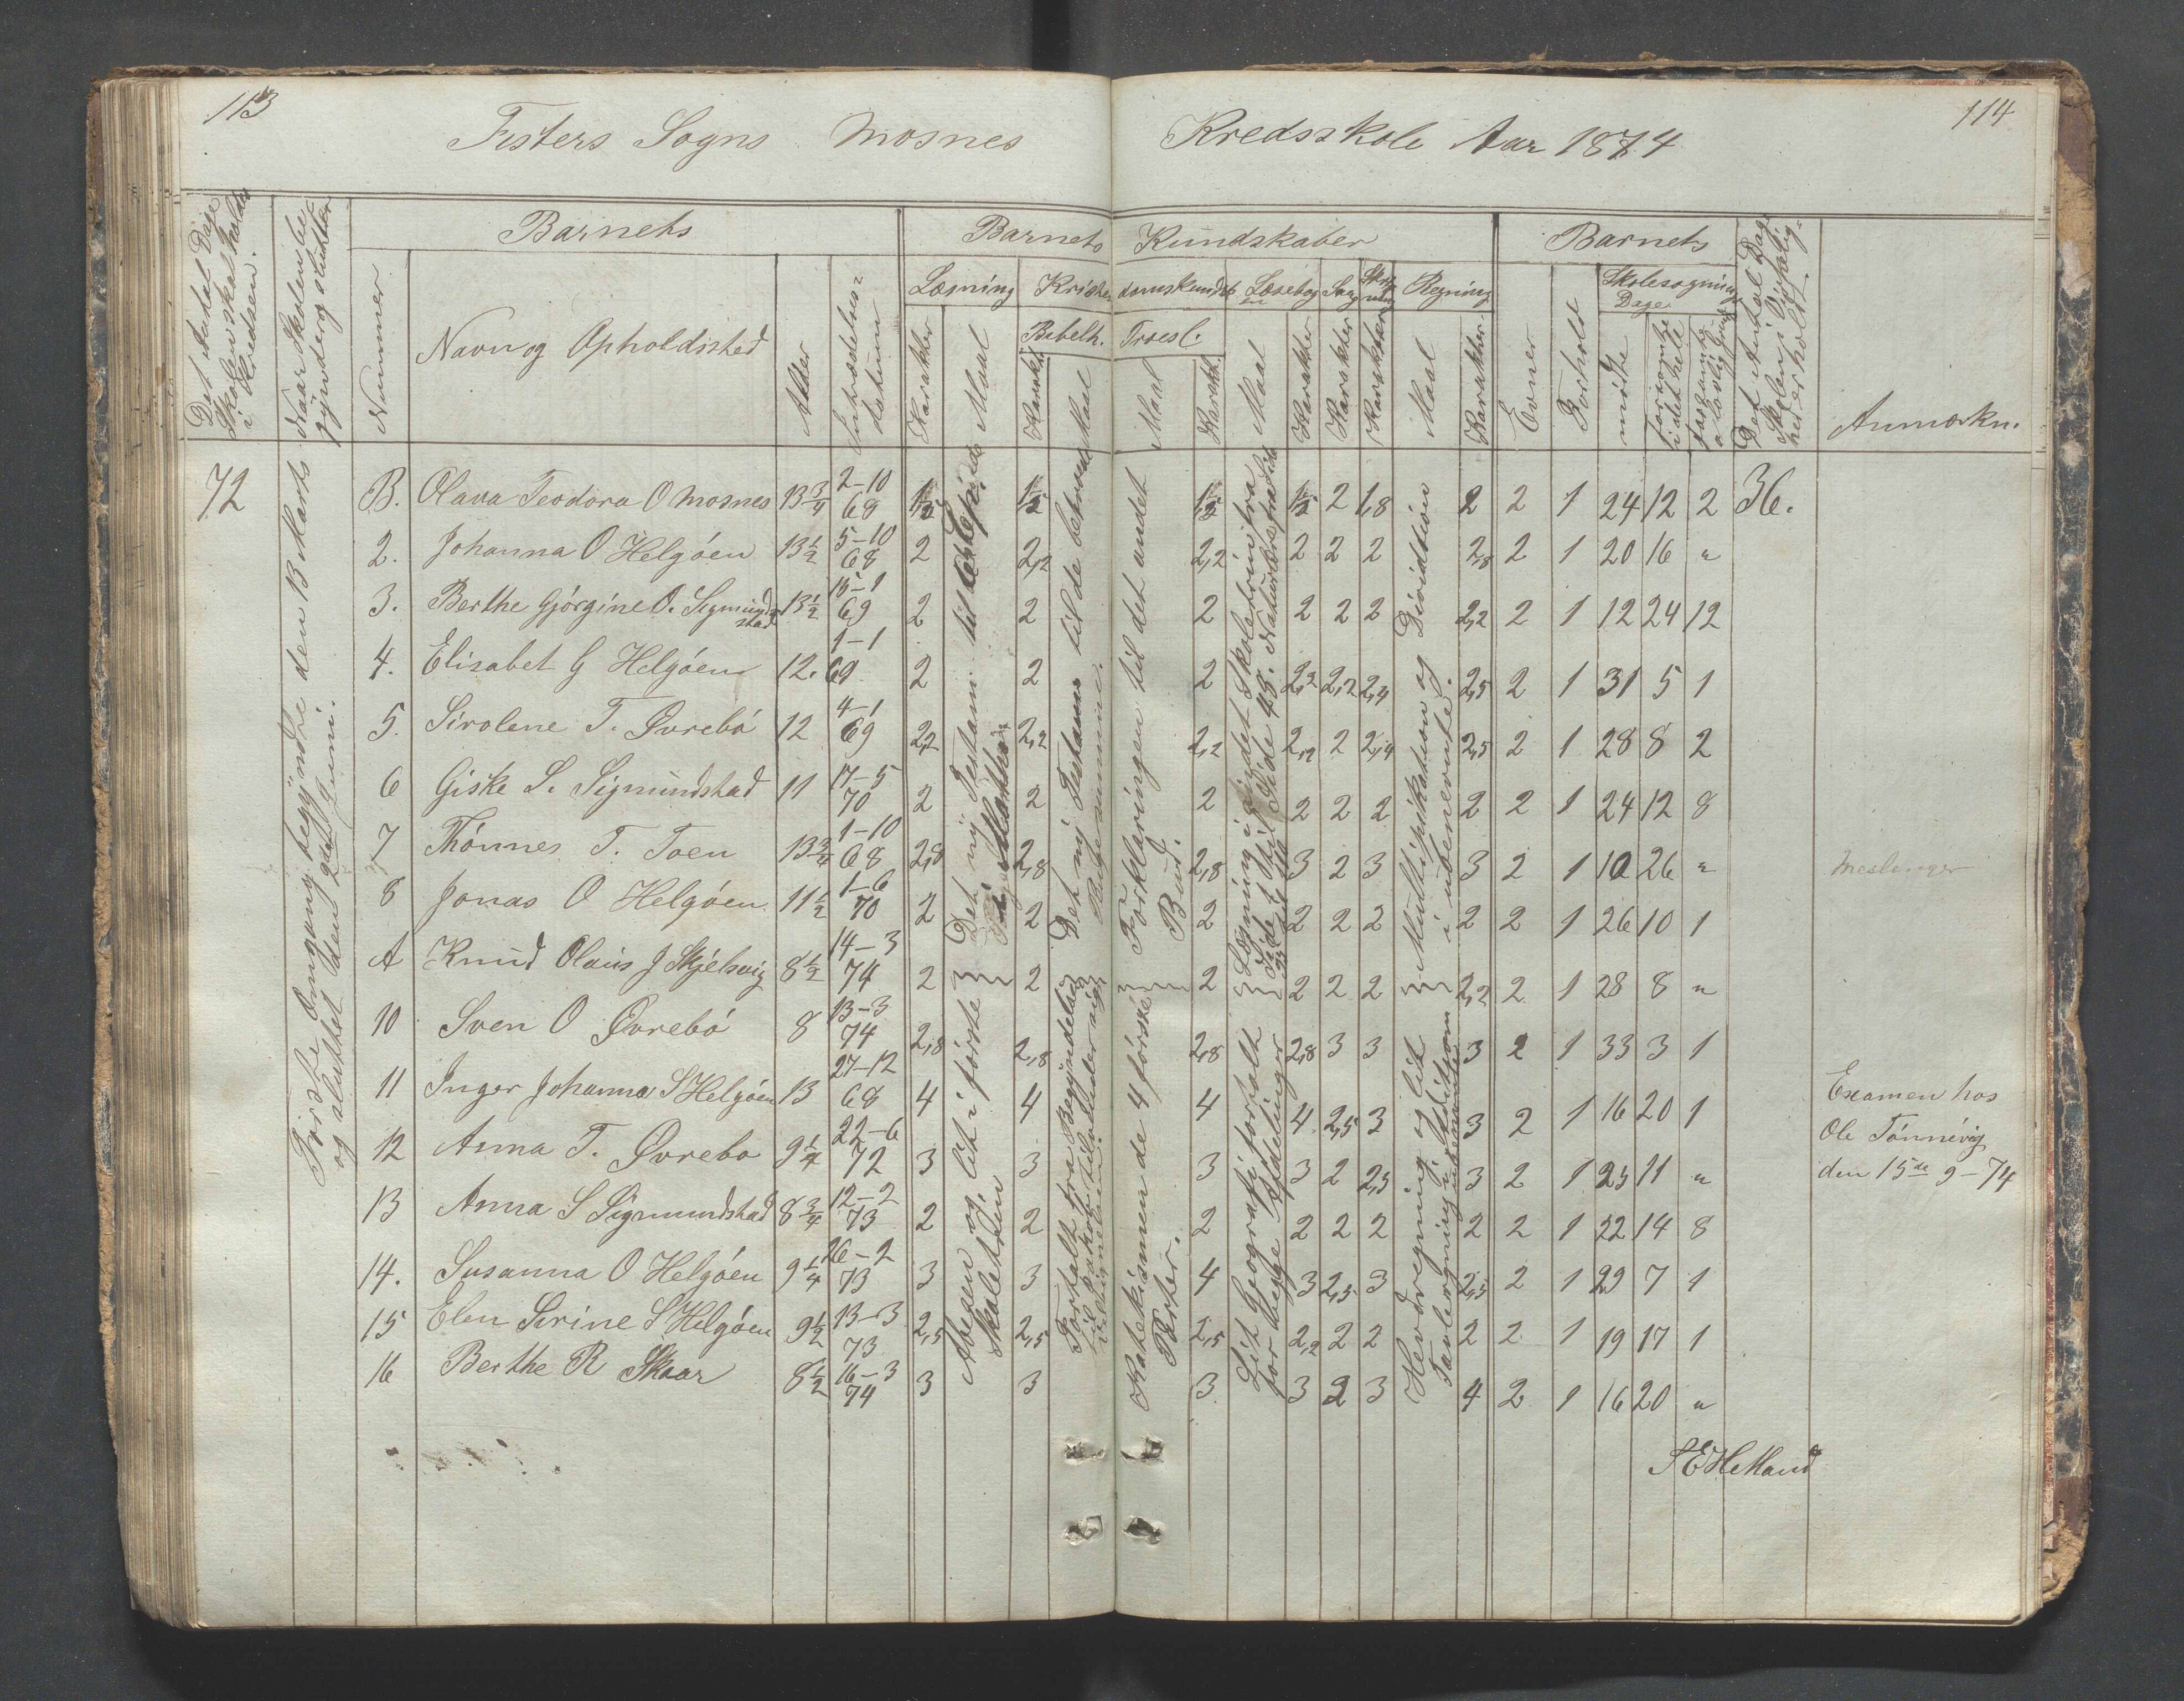 113
114
Fisters Sogns Mosnes Kredsskole Aar 1874
Det Antal Dage Skolen skal holdes i Kredsen.
Naar Skolen begynder og slutter
Barnets
Barnets Kundskaber
Barnets
Nummer
Navn og Opholdssted
Alder
Indtrædelses datum
Læsning
Kristendomskundsk
Læsebogen
Sang
Skrivning
Regning
Bibelh.
Troesl.
Karakter
Maal
Karakt.
Maal
Maal
Karakt.
Maal
Karakter
Karakter
Karakter
Maal
Karakter
Evner
Forhold
Skolesøgnings Dage
mødte
forsømte i det hele
forsømte a lovlig Grund
Det Antal Dage Skolen i Virkelighed er holdt.
Anmærkn.
72
Første Omgang begyndte den 13 Marts
og sluttet den 2den Juni.
B. Olava Teodora O Mosnes 13 3/4 2–10 68 1,5 1,5 1,5 1,5 2 1,8 2 2 1 24 12 2 36.
2. Johanna O Helgøen 13 1/2 5–10 68 2 2,2 2,2 2 2 2 2,8 2 1 20 16 "
3. Berthe Gjørgine O. Sigmundstad 13 1/2 15–1 69 2 2 2 2 2 2 2,2 2 1 12 24 12
4. Elisabet G Helgøen 12. 1–1 69 2 2 2 2,2 2,2 2,4 2,5 2 1 31 5 1
5. Sirolene T. Øvrebø 12 4–1 69 2,2 2,2 2,2 2,2 2 2,4 2,5 2 1 28 8 2
6 Giske S. Sigmundstad 11 17–5 70 2 2 2 2 2 2 2 2 1 24 12 8
7 Thønnes T. Toen 13 3/4 1–10 68 2,8 2,8 2,8 3 2 3 3 2 1 10 26 " Meslinger
8 Jonas O Helgøen 11 1/2 1–6 70 2 2 2 2 2 2 2 2 1 26 10 1
A Knud Olaus J Skjelsvig 8 1/2 14–3 74 2 2 2 2 2 2 2,2 2 1 28 8 "
10 Sven O Øvrebø 8 13–3 74 2,8 2,8 2,8 2,8 3 3 3 2 1 33 3 1
11 Inger Johanna S Helgøen 13 27–12 68 4 4 4 4 2,5 3 3 2 1 16 20 1
12 Anna T. Øvrebø 9 1/4 22–6 72 3 3 3 3 2 2,5 3 2 1 25 11 "
13 Anna S Sigmundstad 8 3/4 12–2 73 2 2 2 2 2 2 2 2 1 22 14 8
14. Susanna O Helgøen 9 1/4 26–2 73 3 3 4 3 2,5 3 2,5 2 1 29 7 1
15 Elen Serine S Helgøen 9 1/2 13–3 73 2,5 2,5 2,5 2,2 2 2 2 2 1 19 17 1
16 Berthe R Skaar 8 1/2 16–3 74 3 3 3 3 2 3 4 2 1 16 20 "
Det ny Testam. til
Abesen og lit i første
Skoletrin
Det ny Testam til de
Fortalt fra Begyndelsen
Forklaringen til det andet
Bud.
Katekismen de 4 første
Parter.
Læsning i andet Skoletrin fra
Side 1 til Side 48. Naturlære fra Side
Lit Geografi fortalt
for begge Afdelinger
Multiplikation og Division
i ubenevnte.
Hovedregning og lit
Tavleregning i Addition
Examen hos
Ole Tønnevig
den 15de 9–74
S E Helland